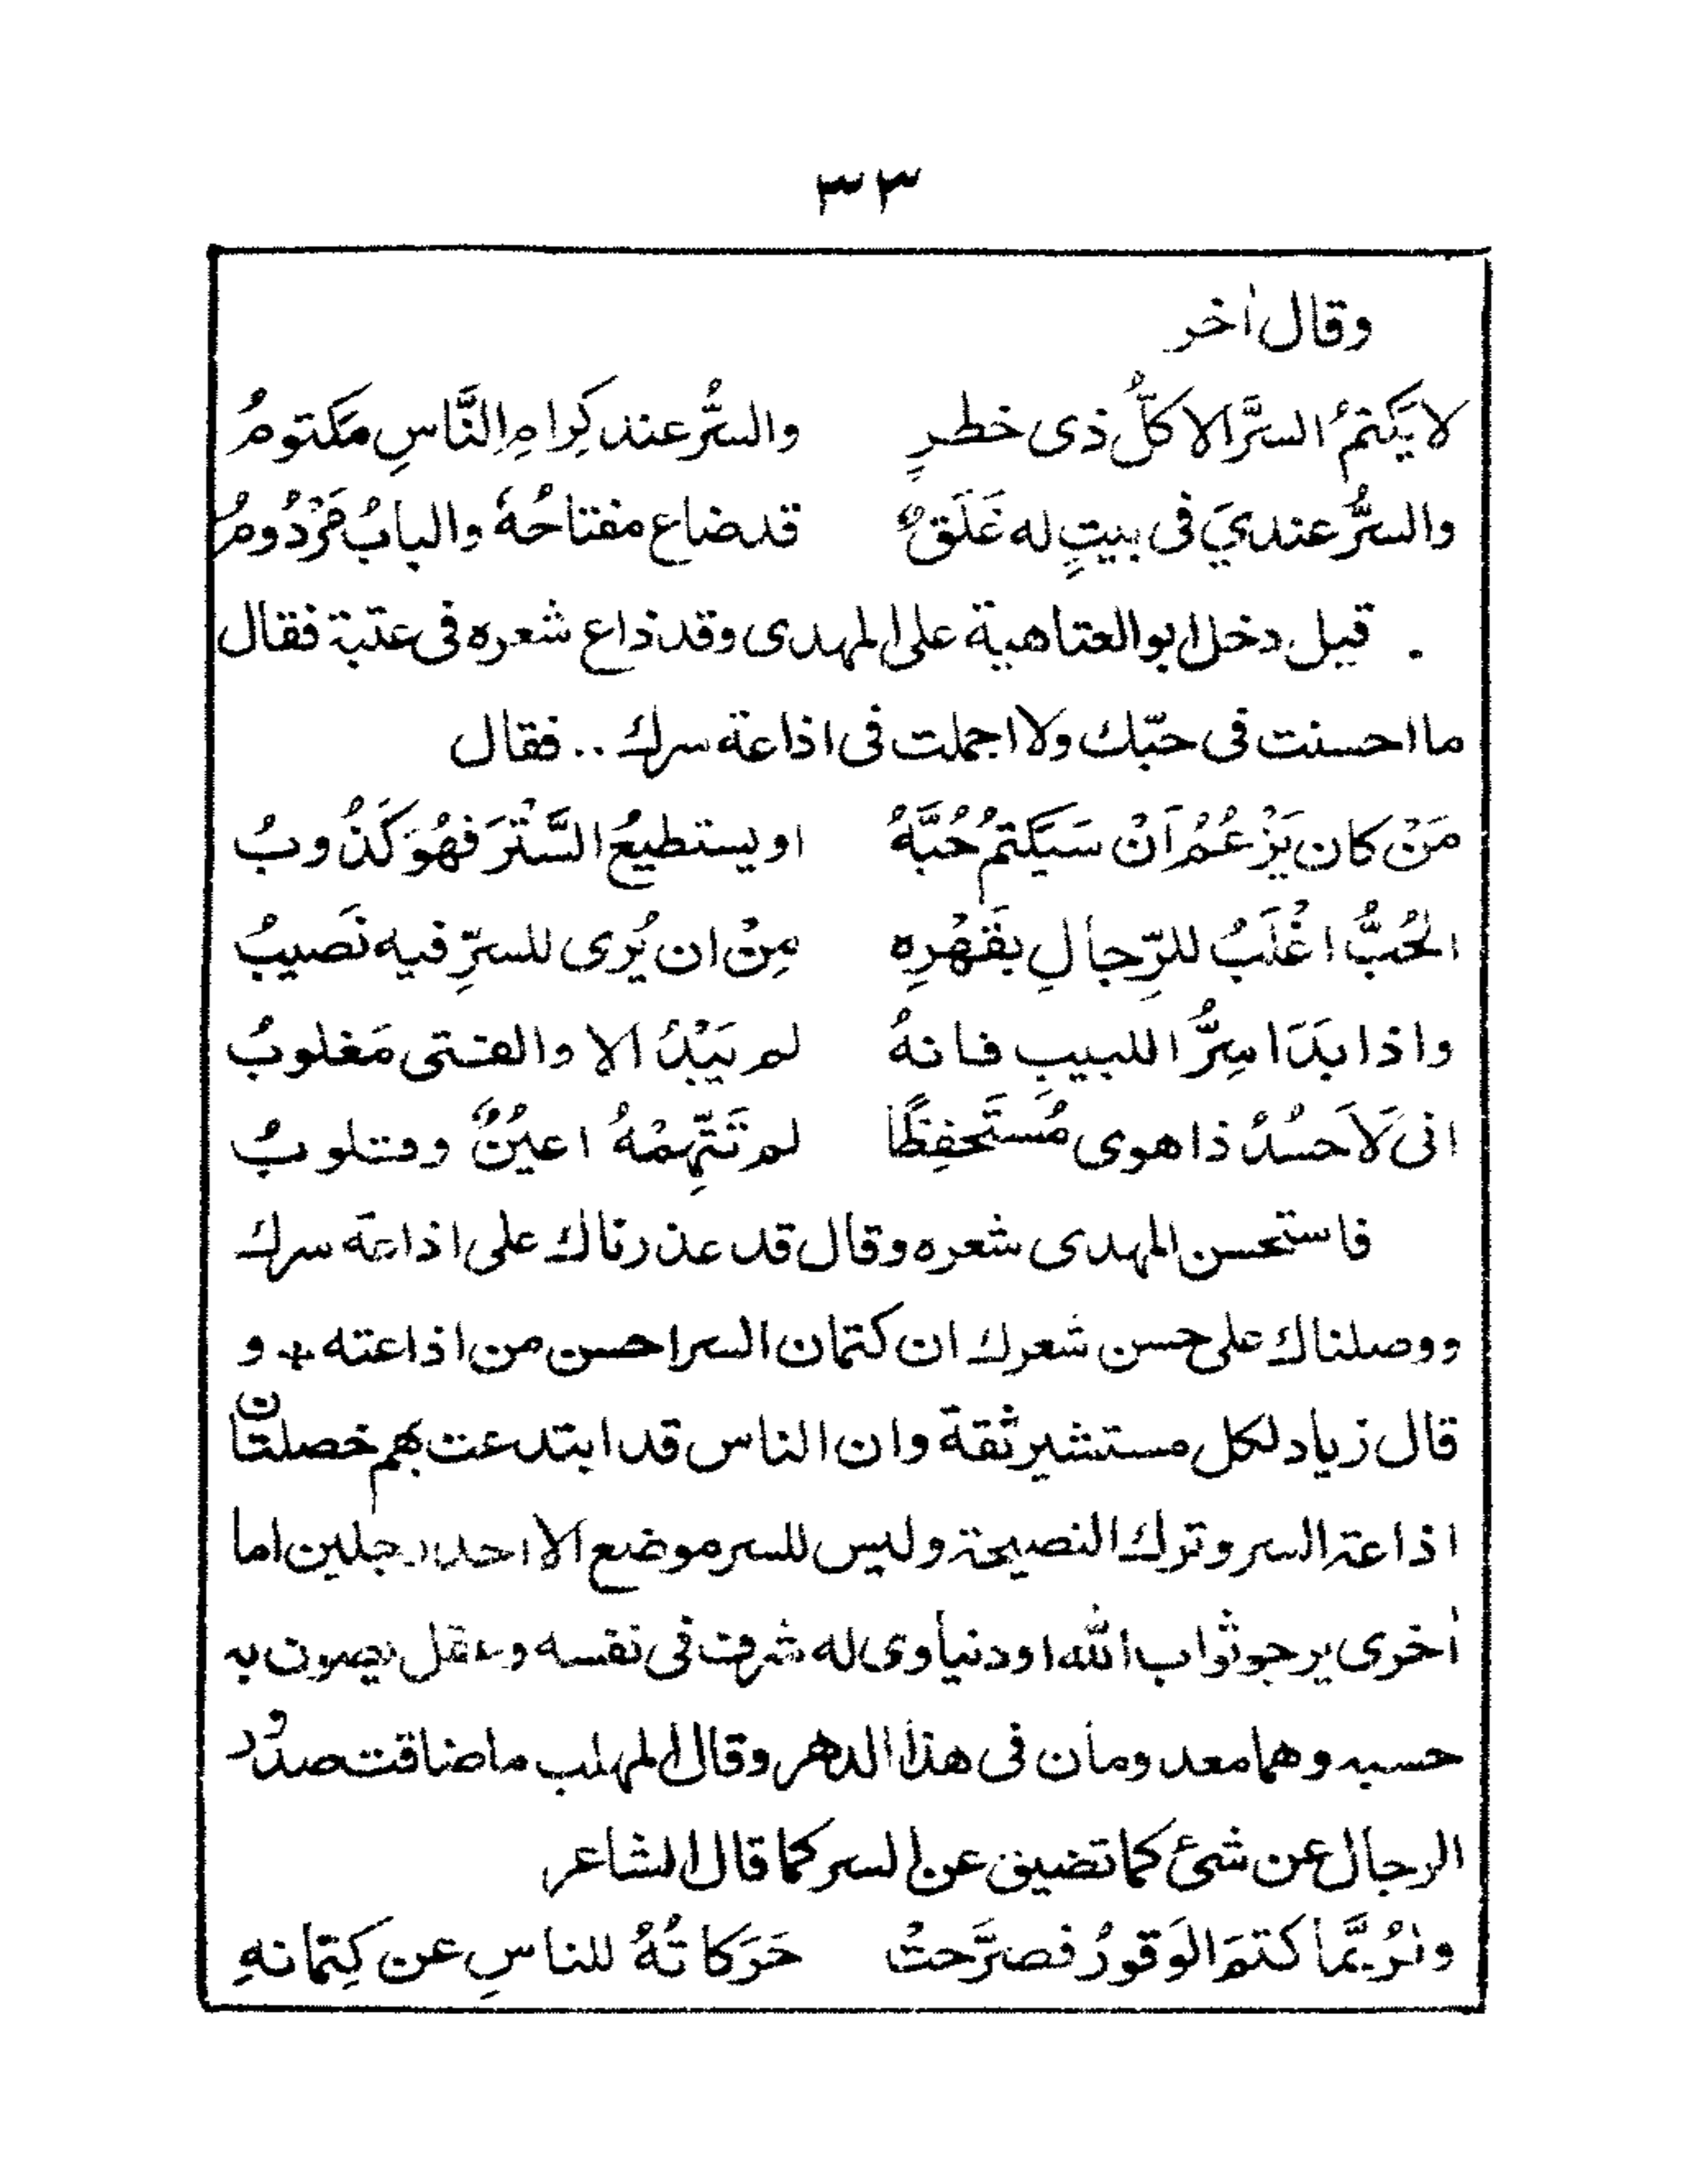 ٣٣
وقال اٰخر
لا يَكتمُ السرَّ الا كلُّ ذى خطرٍ والسُّر عند كِرامِ النَّاسِ مَكتومُ
والسُّر عنديَ فى بيتٍ له غَلَقٌ قد ضاع مفتاحُهُ والبابُ مَرْدُومُ
قيل دخل ابو العتاهية على المهدى وقد ذاع شعره فى عتبة فقال
ما احسنت فى حبّك ولا اجملت فى اذاعة سرك .. فقال
مَنْ كان يَزْعُمُ اَنْ سَيَكتمُ حُبَّهُ او يستطيعُ السَّتْرَ فهُوَ كَذُوبُ
الحُبُّ اغْلَبُ للرِّجالِ بقَهْرِهِ مِنْ ان يُرى للسرِّ فيه نَصيبُ
واذا بَدَا سِرُّ اللبيبِ فانهُ لم يَبْدُ الا والفتى مَغلوبُ
انى لَاَحسُدُ ذا هوى مُستَحفِظًا لم تَتَّهِمْهُ اعيُنٌ وقلوبُ
فاستحسن المهدى شعره وقال قد عذرناك على اذاعة سرك
ووصلناك على حسن شعرك ان كتمان السر احسن من اذاعته * و
قال زياد لكل مستشير ثقة وان الناس قد ابتدعت بهم خصلتان
اذاعة السر وترك النصيحة وليس للسر موضع الا احد رجلين اما
اٰخرى يرجو ثواب الله او دنياوى له شرف فى نفسه وعقل يصون به
حسبه وهما معدومان فى هذا الدهر وقال المهلب ما ضاقت صدُور
الرجال عن شئ كما تضيق عن السر كما قال الشاعر
ولرُبَّما كتمَ الوَقورُ فصرَّحتْ حَرَكاتُهُ للناسِ عن كِتمانهِ